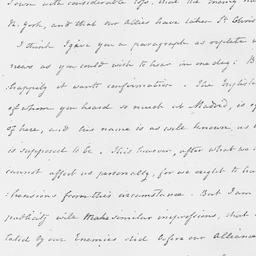 Town with considerable loss, that the enemy
N. York, and that our Allies have taken St Chris
I think I gave you a paragraph as replete w
news as you could wish to hear in one day: B
happily it wants confirmation. The English
of whom you heard so much at Madrid, is
of here, and his name is as well known, as
is supposed to be. This however, after what we
cannot affect us personally, for we ought to ha
:hensions from this circumstance. But I am
publicity will make similar impressions, that
tated by our Enemies did before our Alliance